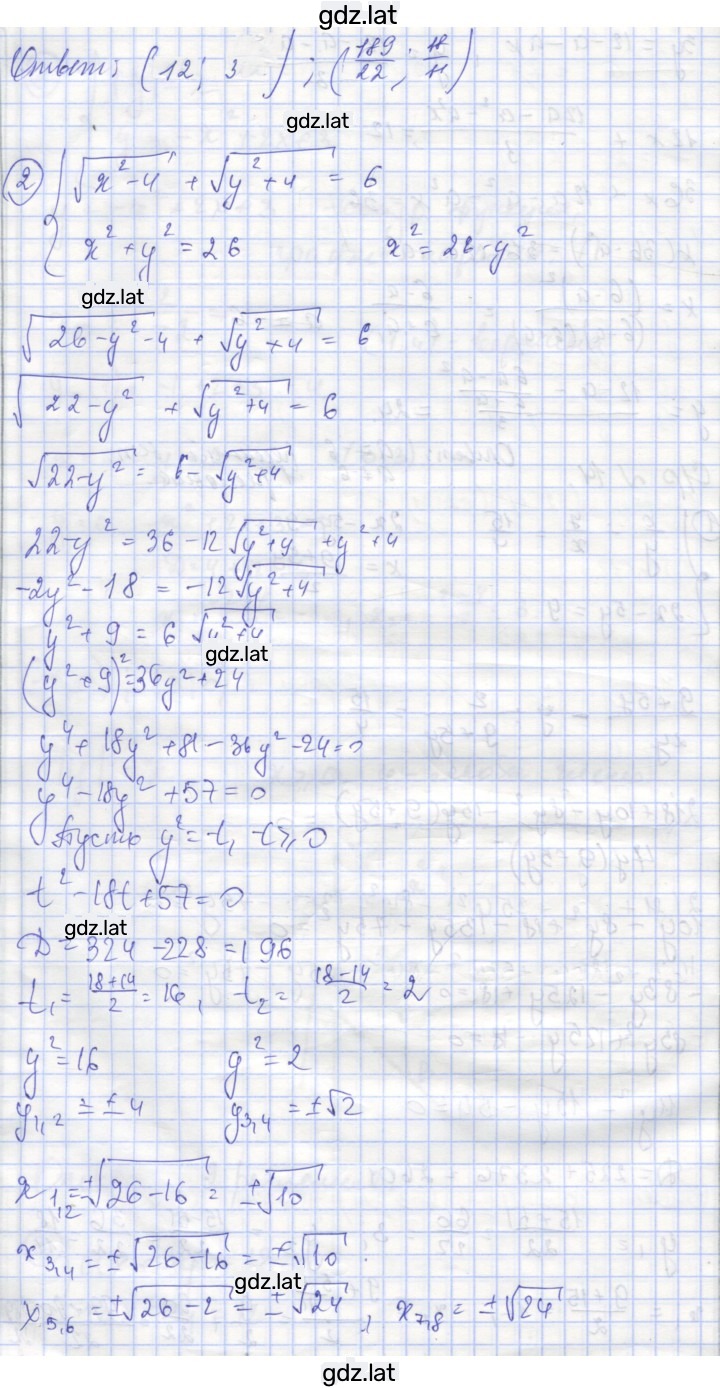 gdz.lat
Ответ: (12; 3); (189/22; 18/11)
gdz.lat
② { √(x²-4) + √(y²+4) = 6
x² + y² = 26    x² = 26 - y²
gdz.lat
√(26-y²-4) + √(y²+4) = 6
√(22-y²) + √(y²+4) = 6
√(22-y²) = 6 - √(y²+4)
22-y² = 36 - 12√(y²+4) + y² + 4
-2y² - 18 = -12√(y²+4)
y² + 9 = 6√(y²+4)
gdz.lat
(y²+9)² = 36y² + 24
y⁴ + 18y² + 81 - 36y² - 24 = 0
y⁴ - 18y² + 57 = 0
Пусть y² = t, t ⩾ 0
t² - 18t + 57 = 0
gdz.lat
D = 324 - 228 = 196
t₁ = (18+14)/2 = 16, t₂ = (18-14)/2 = 2
y² = 16    y² = 2
y₁,₂ = ±4    y₃,₄ = ±√2
x₁,₂ = ±√(26-16) = ±√10
x₃,₄ = ±√(26-16) = ±√10.
gdz.lat
x₅,₆ = ±√(26-2) = ±√24, x₇,₈ = ±√24
gdz.lat